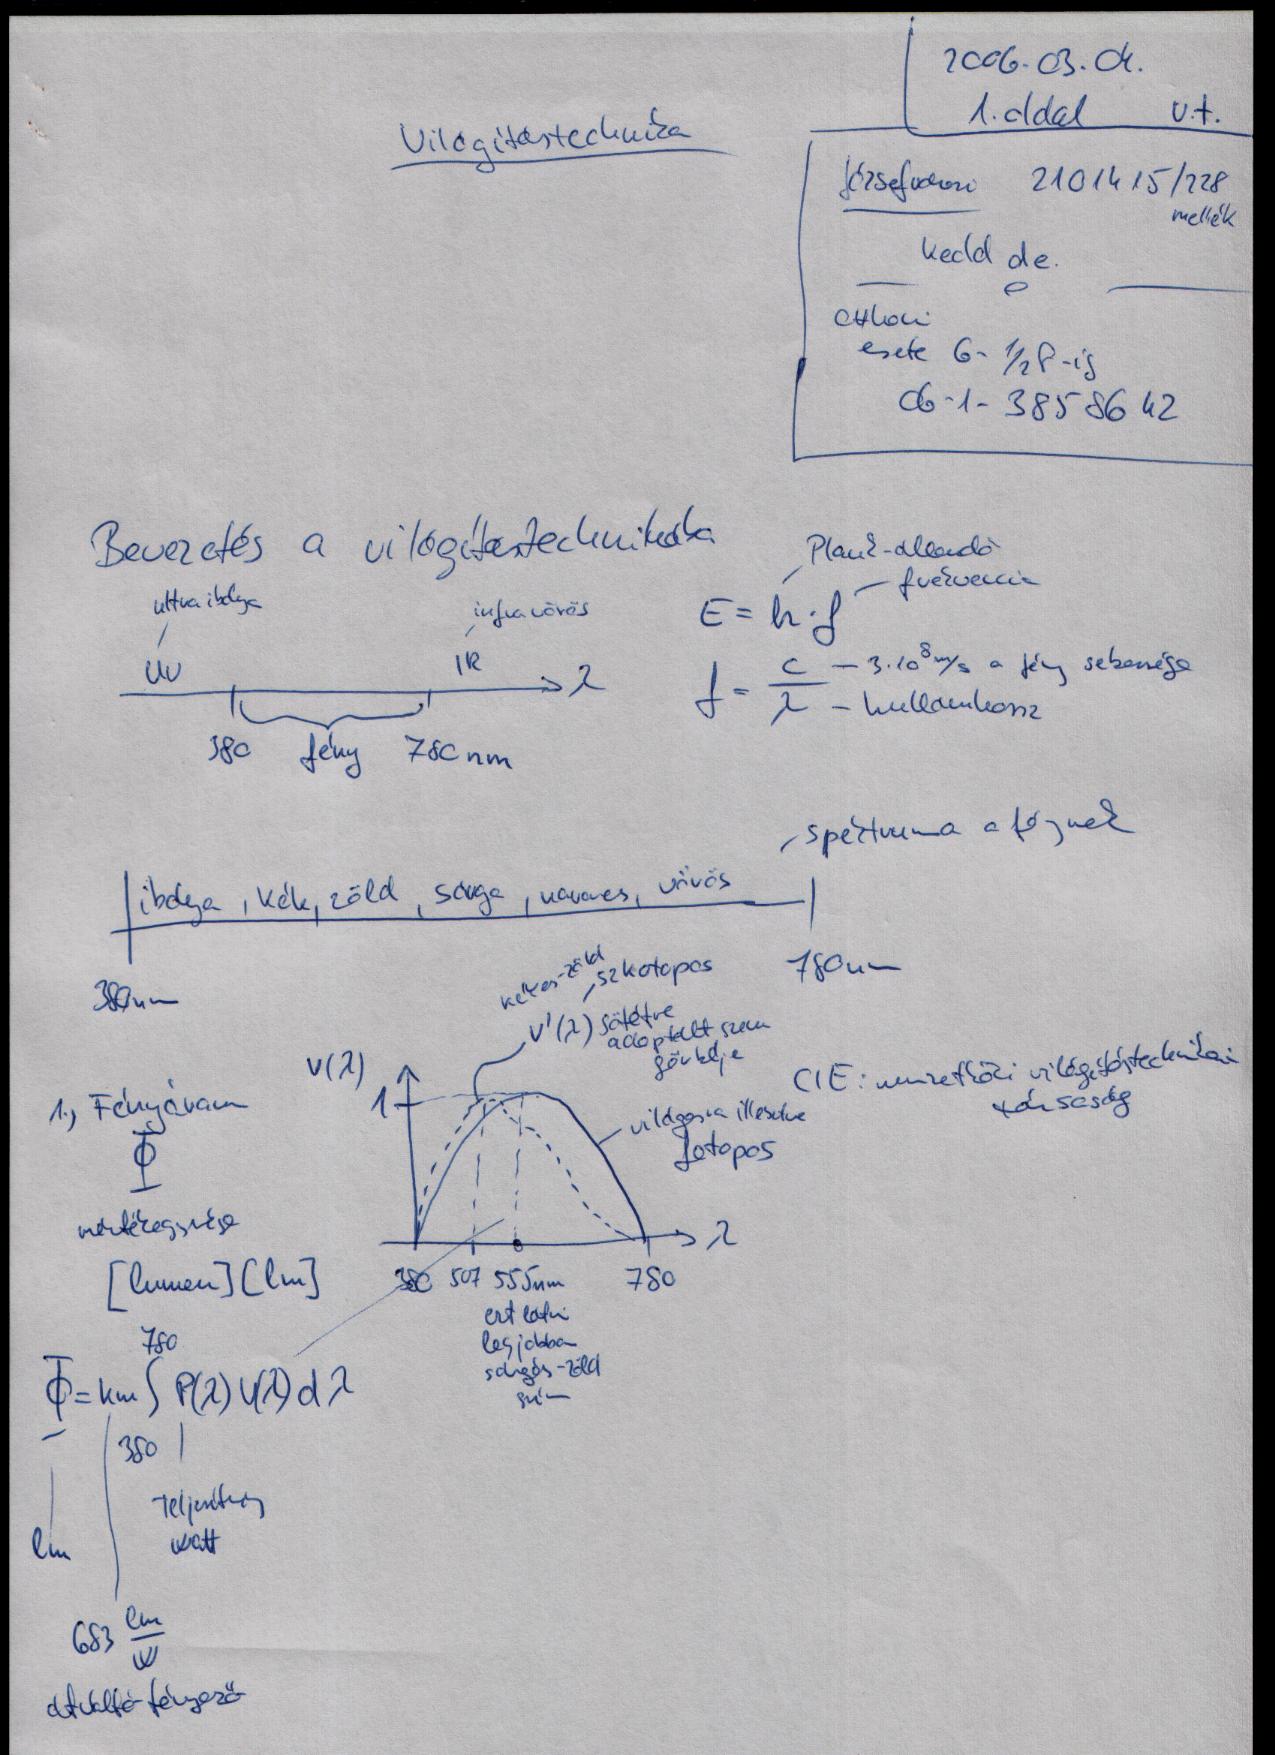 2006.03.01.
1. oldal v.t.
Világítástechnika
Józsefvárosi 2101415/228
mellék
kedd de.
otthoni
este 6-1/2 8-ig
06-1-3858642
Bevezetés a világítástechnikába
ultraibolya
infravörös
UV IR λ
380 fény 780 nm
Planck-állandó
frekvencia
E = h·f
f = c/λ
3·10⁸ m/s a fény sebessége
hullámhossz
spektruma a fénynek
ibolya, kék, zöld, sárga, narancs, vörös
380nm
780nm
kékes-zöld
szkotopos
V'(λ) sötétre
adaptált szem
görbéje
V(λ)
1
világosra illesztve
fotopos
λ
380 507 555nm 780
ezt látni
legjobban
sárgás-zöld
szín
CIE: nemzetközi világítástechnikai
társaság
1., Fényáram
Φ
mértékegysége
[lumen] [lm]
780
Φ = km ∫ P(λ) V(λ) dλ
380
Teljesítmény
watt
lm
683 lm/W
átváltó tényező